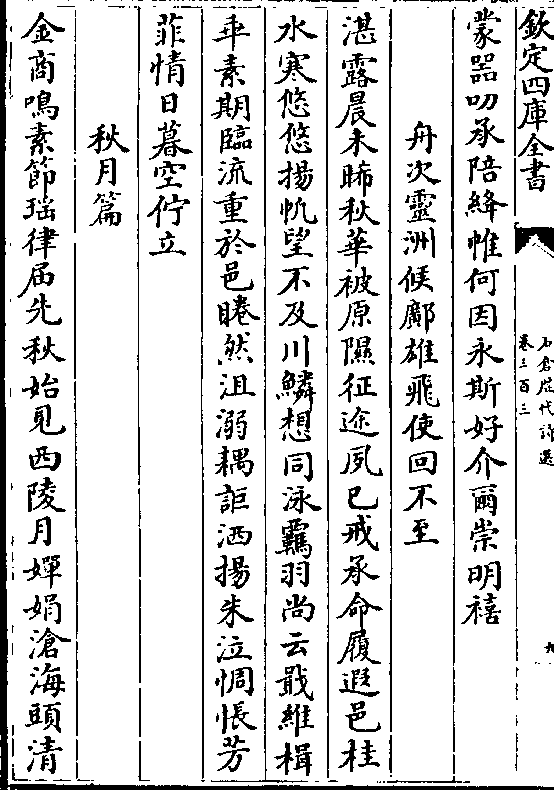 欽定四庫全書
石倉歴代詩選
卷三百三
九
蒙器叨承陪絳帷何因永斯好介爾崇明禧
舟次靈洲候鄺雄飛使回不至
湛露晨未晞秋華被原隰征途夙已戒承命履遐邑桂
水寒悠悠揚帆望不及川鱗想同泳羈羽尚云戢維楫
乖素期臨流重於邑睠然沮溺耦詎洒揚朱泣惆悵芳
菲情日暮空佇立
秋月篇
金商鳴素節瑶律届先秋始見西陵月嬋娟滄海頭清